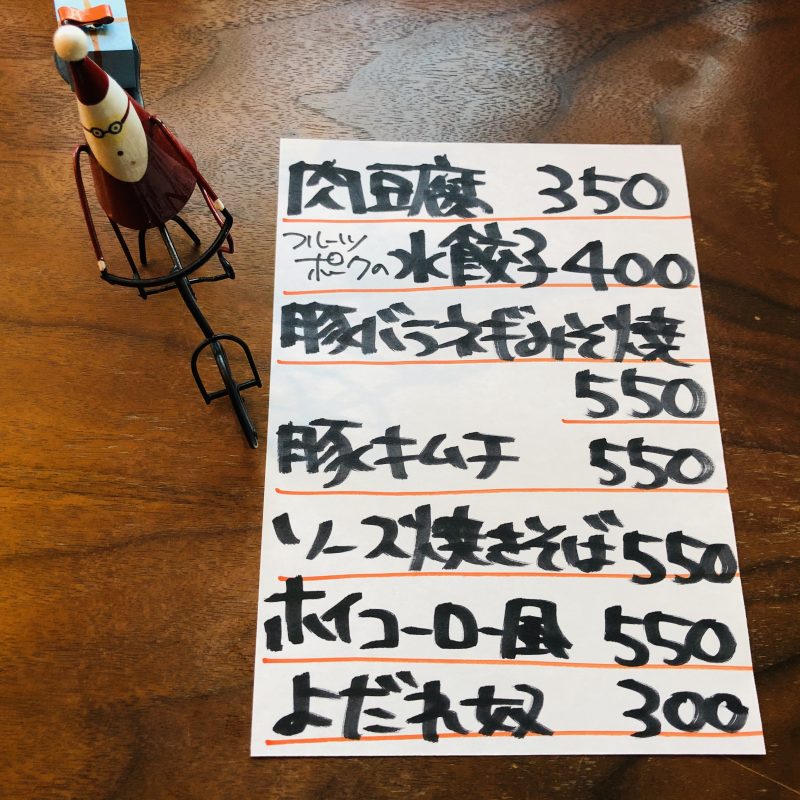 肉豆腐 350
フルーツポークの水餃子 400
豚バラネギみそ焼
550
豚キムチ 550
ソース焼きそば 550
ホイコーロー風 550
よだれ奴 300